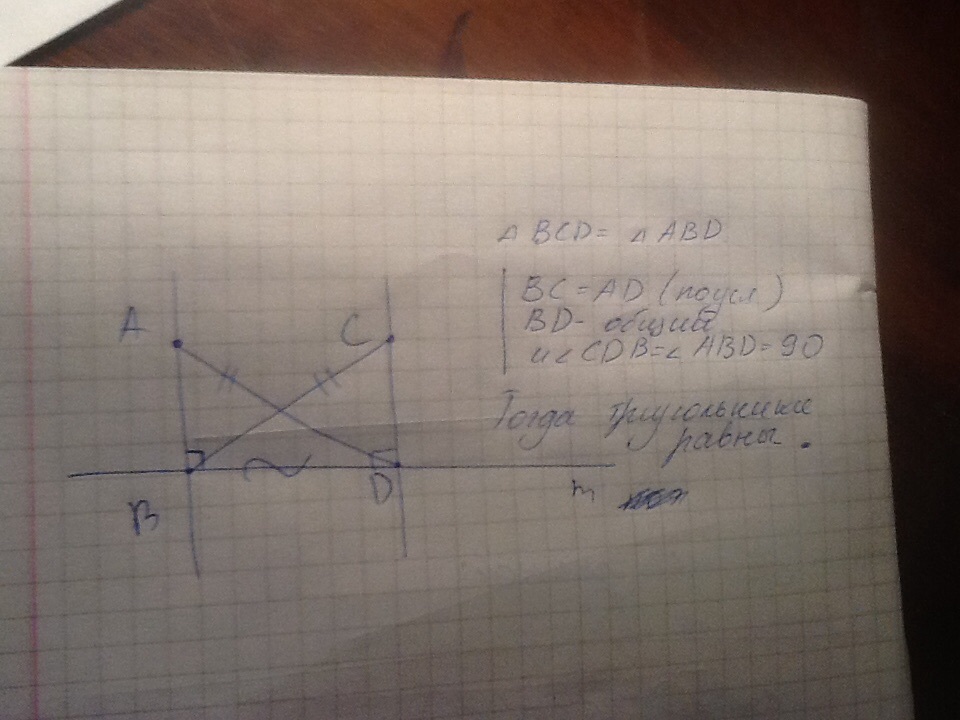 △ BCD = △ ABD
BC = AD (по усл)
BD - общий
и ∠ CDB = ∠ ABD = 90
Тогда треугольники
равны.
A
C
B
D
m